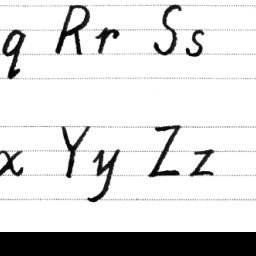 q Rr Ss
x Yy Zz